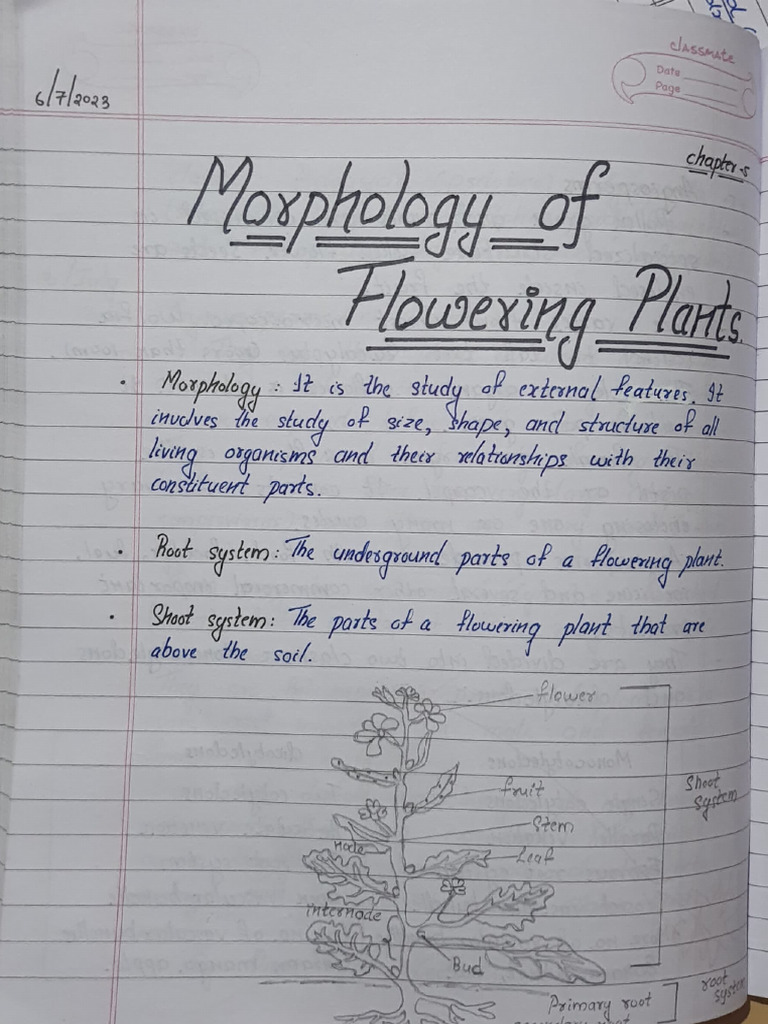 classmate
Date
Page
6/7/2023
chapter-5
Morphology of
Flowering Plants.
• Morphology : It is the study of external features. It
involves the study of size, shape, and structure of all
living organisms and their relationships with their
constituent parts.
• Root system : The underground parts of a flowering plant.
• Shoot system : The parts of a flowering plant that are
above the soil.
flower
fruit
Shoot
system
Stem
Node
Leaf
internode
Bud
root
system
Primary root
secondary root